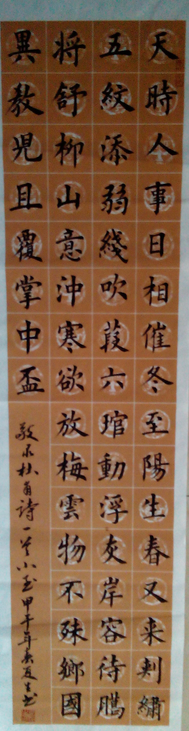 天時人事日相催冬至陽生春又来刾繡
五紋添弱綫吹葭六琯動浮灰岸容待臈
將舒柳山意沖寒欲放梅雲物不殊鄉國
異教児且覆掌中盃
敬录杜甫詩一首小至甲午年炎夏书